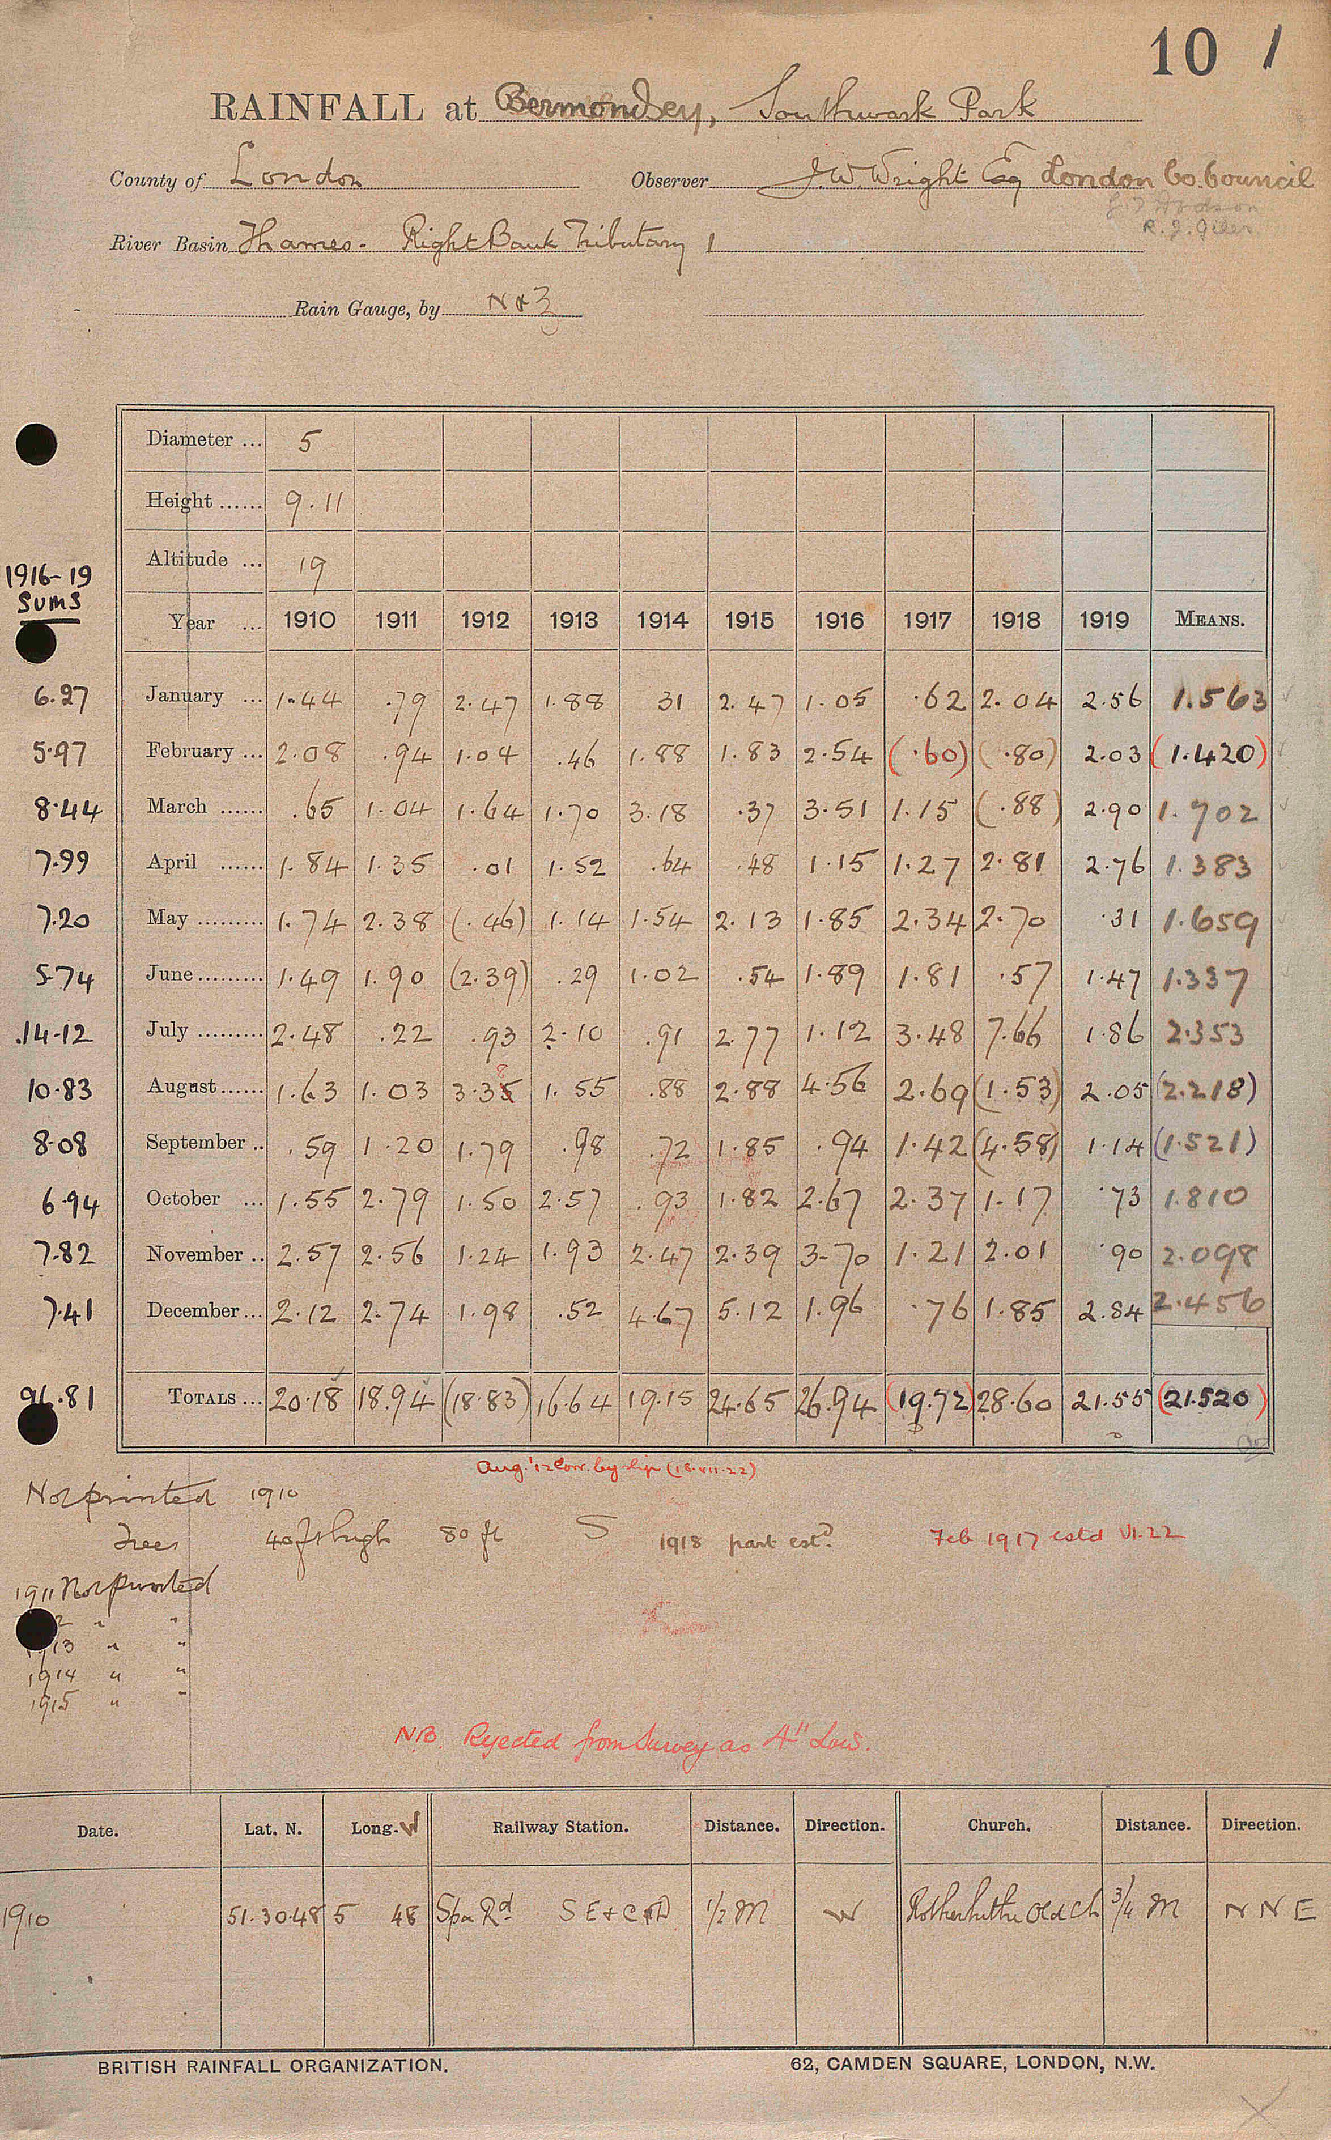 10 1
RAINFALL at Bermondsey, Southwark Park
County of London Observer J. W. Wright Esq London Co. Council
River Basin Thames - Right Bank Tributary 1 R. J. Giles
Rain Gauge, by N & Z
Diameter ... 5
Height ...... 9.11
Altitude ... 19
1916-19 Sums
Year ... 1910 1911 1912 1913 1914 1915 1916 1917 1918 1919 MEANS.
6.27 January ... 1.44 .79 2.47 1.88 31 2.47 1.05 .62 2.04 2.56 1.563
5.97 February ... 2.08 .94 1.04 .46 1.88 1.83 2.54 (.60) (.80) 2.03 (1.420)
8.44 March ...... .65 1.04 1.64 1.70 3.18 .37 3.51 1.15 (.88) 2.90 1.702
7.99 April ...... 1.84 1.35 .01 1.52 .64 .48 1.15 1.27 2.81 2.76 1.383
7.20 May ......... 1.74 2.38 (.46) 1.14 1.54 2.13 1.85 2.34 2.70 .31 1.659
5.74 June ......... 1.49 1.90 (2.39) .29 1.02 .54 1.89 1.81 .57 1.47 1.337
14.12 July ......... 2.48 .22 .93 2.10 .91 2.77 1.12 3.48 7.66 1.86 2.353
10.83 August ...... 1.63 1.03 3.38 1.55 .88 2.88 4.56 2.69 (1.53) 2.05 (2.218)
8.08 September .. .59 1.20 1.79 .98 .72 1.85 .94 1.42 (4.58) 1.14 (1.521)
6.94 October ... 1.55 2.79 1.50 2.57 .93 1.82 2.67 2.37 1.17 .73 1.810
7.82 November .. 2.57 2.56 1.24 1.93 2.47 2.39 3.70 1.21 2.01 .90 2.098
7.41 December ... 2.12 2.74 1.98 .52 4.67 5.12 1.96 .76 1.85 2.84 2.456
96.81 TOTALS ... 20.18 18.94 (18.83) 16.64 19.15 24.65 26.94 (19.72) 28.60 21.55 (21.520)
Aug. '12 Corr. by slip (18.VII.22)
Not printed 1910
Trees 40 ft high 80 ft S 1918 part estd. Feb 1917 estd VI.22
1911 Not printed
2 " "
1913 " "
1914 " "
1915 " "
NB. Rejected from Survey as All Low.
Date. Lat. N. Long. W Railway Station. Distance. Direction. Church. Distance. Direction.
1910 51.30.48 5 48 Spa Rd S E & C R 1/2 M W Rotherhithe Old Ch 3/4 M N N E
BRITISH RAINFALL ORGANIZATION. 62, CAMDEN SQUARE, LONDON, N.W.